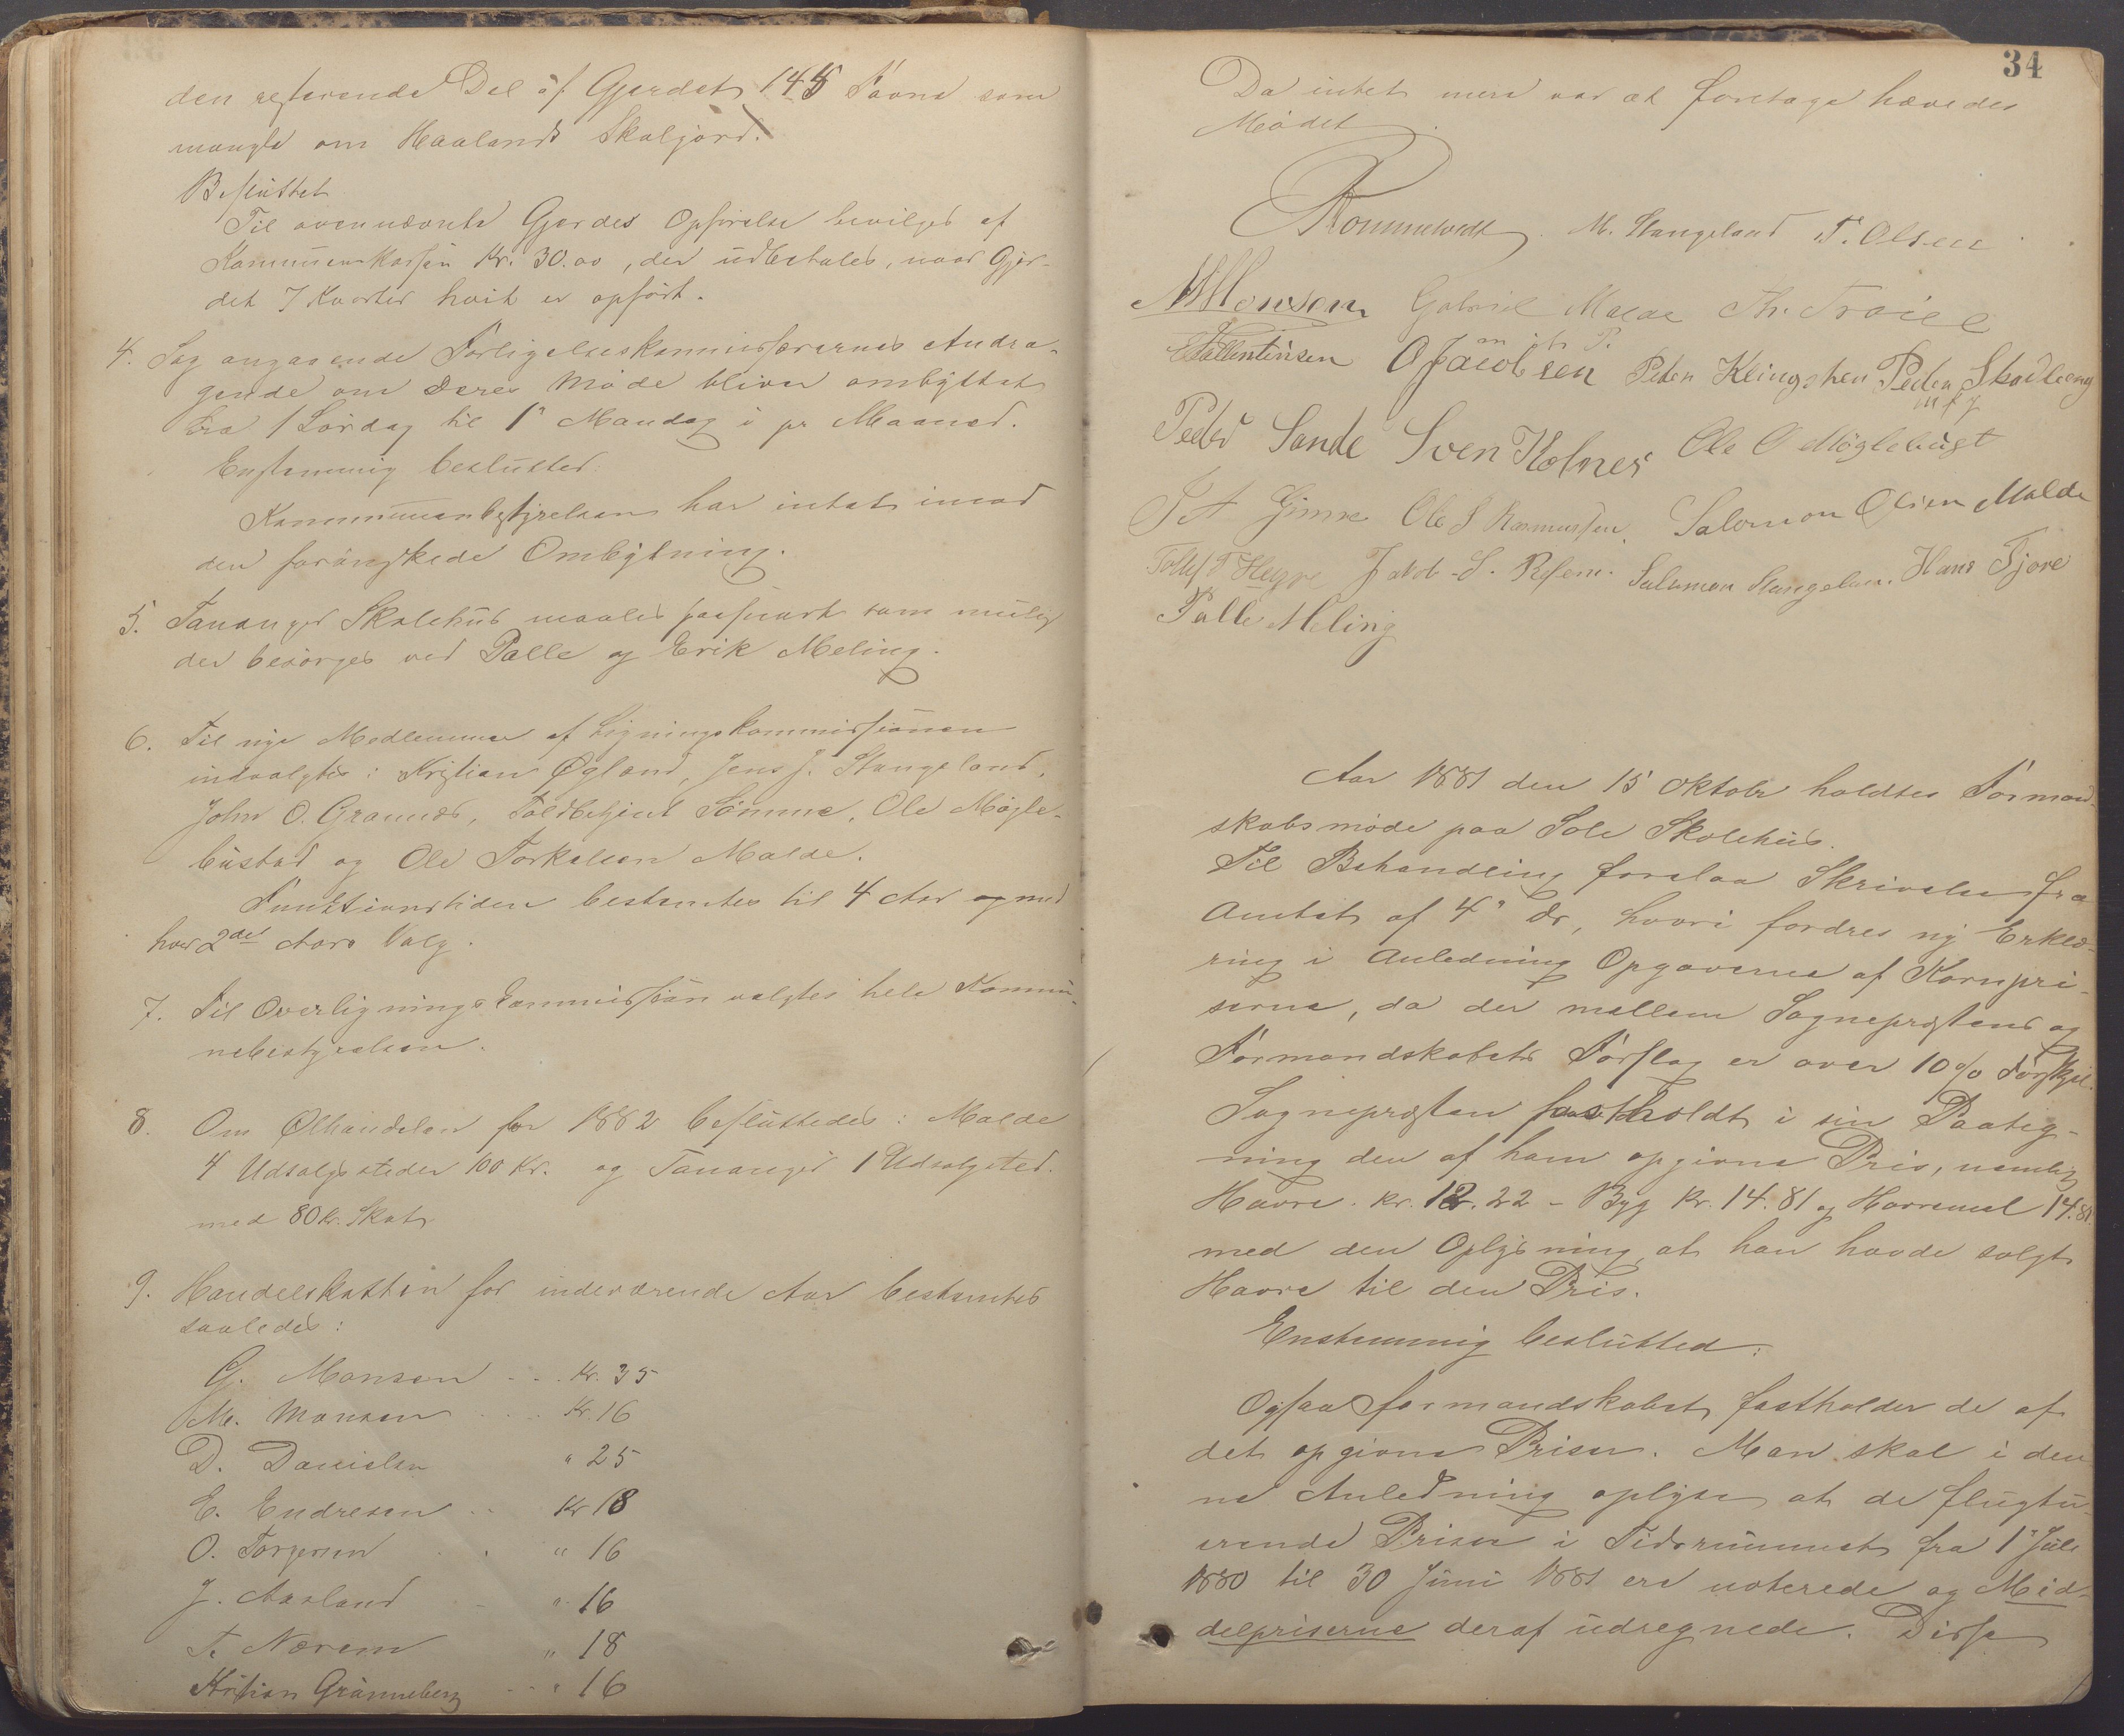 den resterende Del af Gjerdet 145 Favne som
mangle om Haalands Skoljord.
Besluttet
Til ovennævnte Gjerdes Opførelse bevilges af
Kommunekassen Kr. 30.00, der udbetales, naar Gjer-
det 7 Kvarter høit er opført.
4. Sag angaaende Forligelseskommissærernes Andra-
gende om Deres Møde bliver ombyttet
fra 1 Lørdag til 1ste Mandag i pr Maaned.
Enstemmig besluttet:
Kommunenbestyrelsen har intet imod
den forønskede Ombytning.
5. Tananger Skolehus maales saasnart som mulig
der besørges ved Palle og Erik Meling.
6. Til nye Medlemmer af Ligningskommissionen
indvalgtes: Kristian Øgland, Jens J. Stangeland,
John O. Grannes, Toldbetjent Sømme, Ole Møgle-
bustad og Ole Torkelsen Malde.
Funktionstiden bestemtes til 4 Aar og med
hver 2det Aars Valg.
7. Til Overligningskommission valgtes hele Kommu-
nebestyrelsen.
8. Om Ølhandelen for 1882 besluttedes: Malde
4 Udsalgssteder 100 Kr. og Tananger 1 Udsalgsted.
med 80 Kr. Skat.
9. Handelskatten for indeværende Aar bestemtes
saaledes:
G. Monsen . . . Kr. 35
M. Monsen . . . Kr. 16
D. Danielsen " 25
E. Endresen . . Kr 18
O. Torgersen . . " 16
J. Aasland - " 16
T. Nærem " 18
Kristian Grønneberg - - " 16
34
Da intet mere var at foretage hævedes
Mødet.
Rommetvedt. M. Stangeland T. Olsen
M Monsen Gabriel Malde Th. Traiel
Vallentinsen O Jacobsen Peder Klingsheu Peder Skadberg
m f p
Peder Sande Sven Kolnes Ole O Møglebust
T A Gimre Ole S Rasmussen. Salomon Olsen Malde
Tollef T Hegre Jakob S. Refem. Salomon Stangeland. Hans Tjore
Palle Meling
Aar 1881 den 15 Oktobr holdtes Formand
skabsmøde paa Sole Skolehus.
Til Behandling forelaa Skrivelse fra
Amtet af 4" ds, hvori fordres ny Erklæ-
ring i Anledning Opgaverne af Kornpri-
serne, da der mellem Sogneprestens og
Formandskabets Forslag er over 10% Forskjel.
Sognepresten fastholdt i sin Paateg-
ning den af ham opgivne Pris, nemlig
Havre. Kr. 12.22 - Byg Kr. 14.81 og Havremel 14.81
med den Oplysning, at han havde solgt
Havre til den Pris.
Enstemmig besluttet:
Ogsaa formandskabet fastholder de af
det opgivne Priser. Man skal i den
ne Anledning oplyse at de flugtu-
erende Priser i Tidsrummet fra 1" Juli
1880 til 30 Juni 1881 ere noterede og Mid-
delpriserne deraf udregnede. Disse